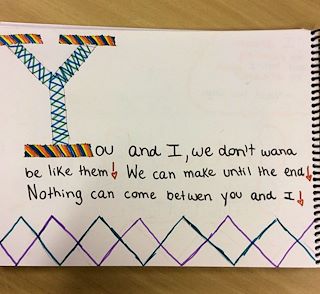 You and I, we don't wana
be like them! We can make until the end!
Nothing can come betwen you and I!